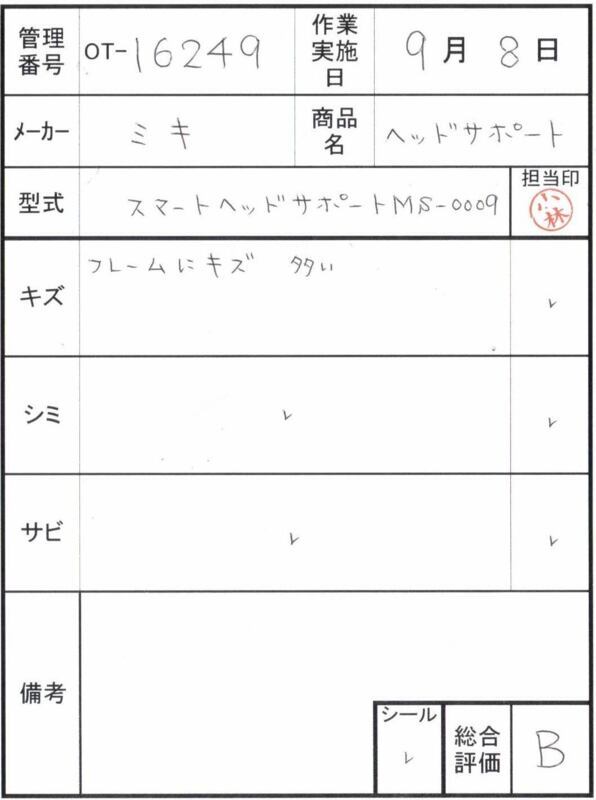 管理番号 OT-16249 作業実施日 9月8日
メーカー ミキ 商品名 ヘッドサポート
型式 スマートヘッドサポートMS-0009 担当印 小林
キズ フレームにキズ 多い ✓
シミ ✓ ✓
サビ ✓ ✓
備考
シール ✓ 総合評価 B